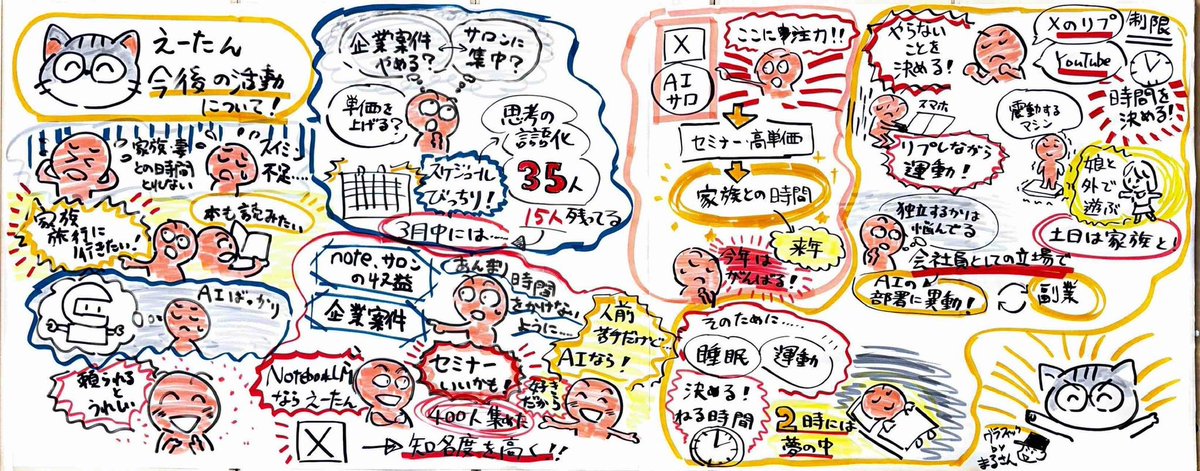 えーたん
今後の活動
について!
家族・妻
との時間
とれない
スイミン
不足....
家族
旅行に
行きたい!
本も読みたい
AIばっかり
頼られる
とうれしい
企業案件
やめる?
サロンに
集中?
単価を
上げる?
思考の
言語化
35人
15人残ってる
スケジュール
びっちり!
3月中には....
note、サロン
の収益
企業案件
あんまり
時間
をかけない
ように....
NotebookLM
ならえーたん
セミナー
いいかも!
400人集めた
人前
苦手だけど...
AIなら!
好き
だから
X
知名度を高く!!
X
AI
サロ
ここに専注力!!
セミナー・高単価
家族との時間
来年
今年は
がんばる!
そのために......
睡眠
運動
決める!
ねる時間
2時には
夢の中
やらない
ことを
決める!
Xのリプ
YouTube
制限
時間を
決める!
スマホ
リプしながら
運動!
震動する
マシン
娘と
外で
遊ぶ
土日は家族と
独立するかは
悩んでる
会社員としての立場で
AIの
部署に異動!
副業
グラフィック
by
まるさん